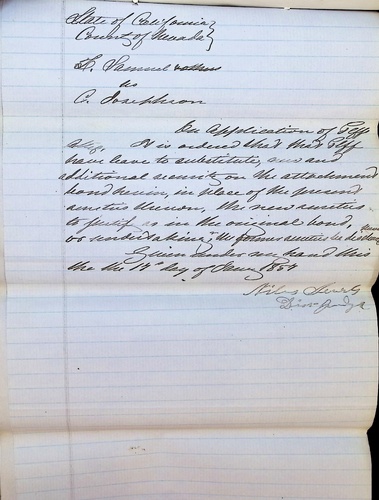 State of California }
County of Nevada }
H. Samuel & others
vs
C. Josephson
On application of Plff
atty. It is ordered that that Plff
have leave to substitute, and
additional security on the attachment
bond herein, in place of the present
sureties thereon, the new sureties
to justify as in the original bond,
or undertaking, the former sureties be discharged
Given under my hand this
the day of 185
Niles Searls
Dist Judge